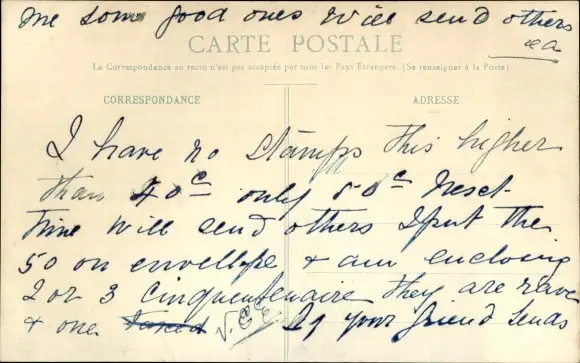 me some good ones Will send others
ea
CARTE POSTALE
La Correspondance au recto n'est pas acceptée par tous les Pays Etrangers. (Se renseigner à la Poste).
CORRESPONDANCE
ADRESSE
I have no stamps this higher
than 40c only 50c Next
time will send others I put the
50 on envellope & am enclosing
2 or 3 Cinquentenaire they are rare
& one If your friend sends